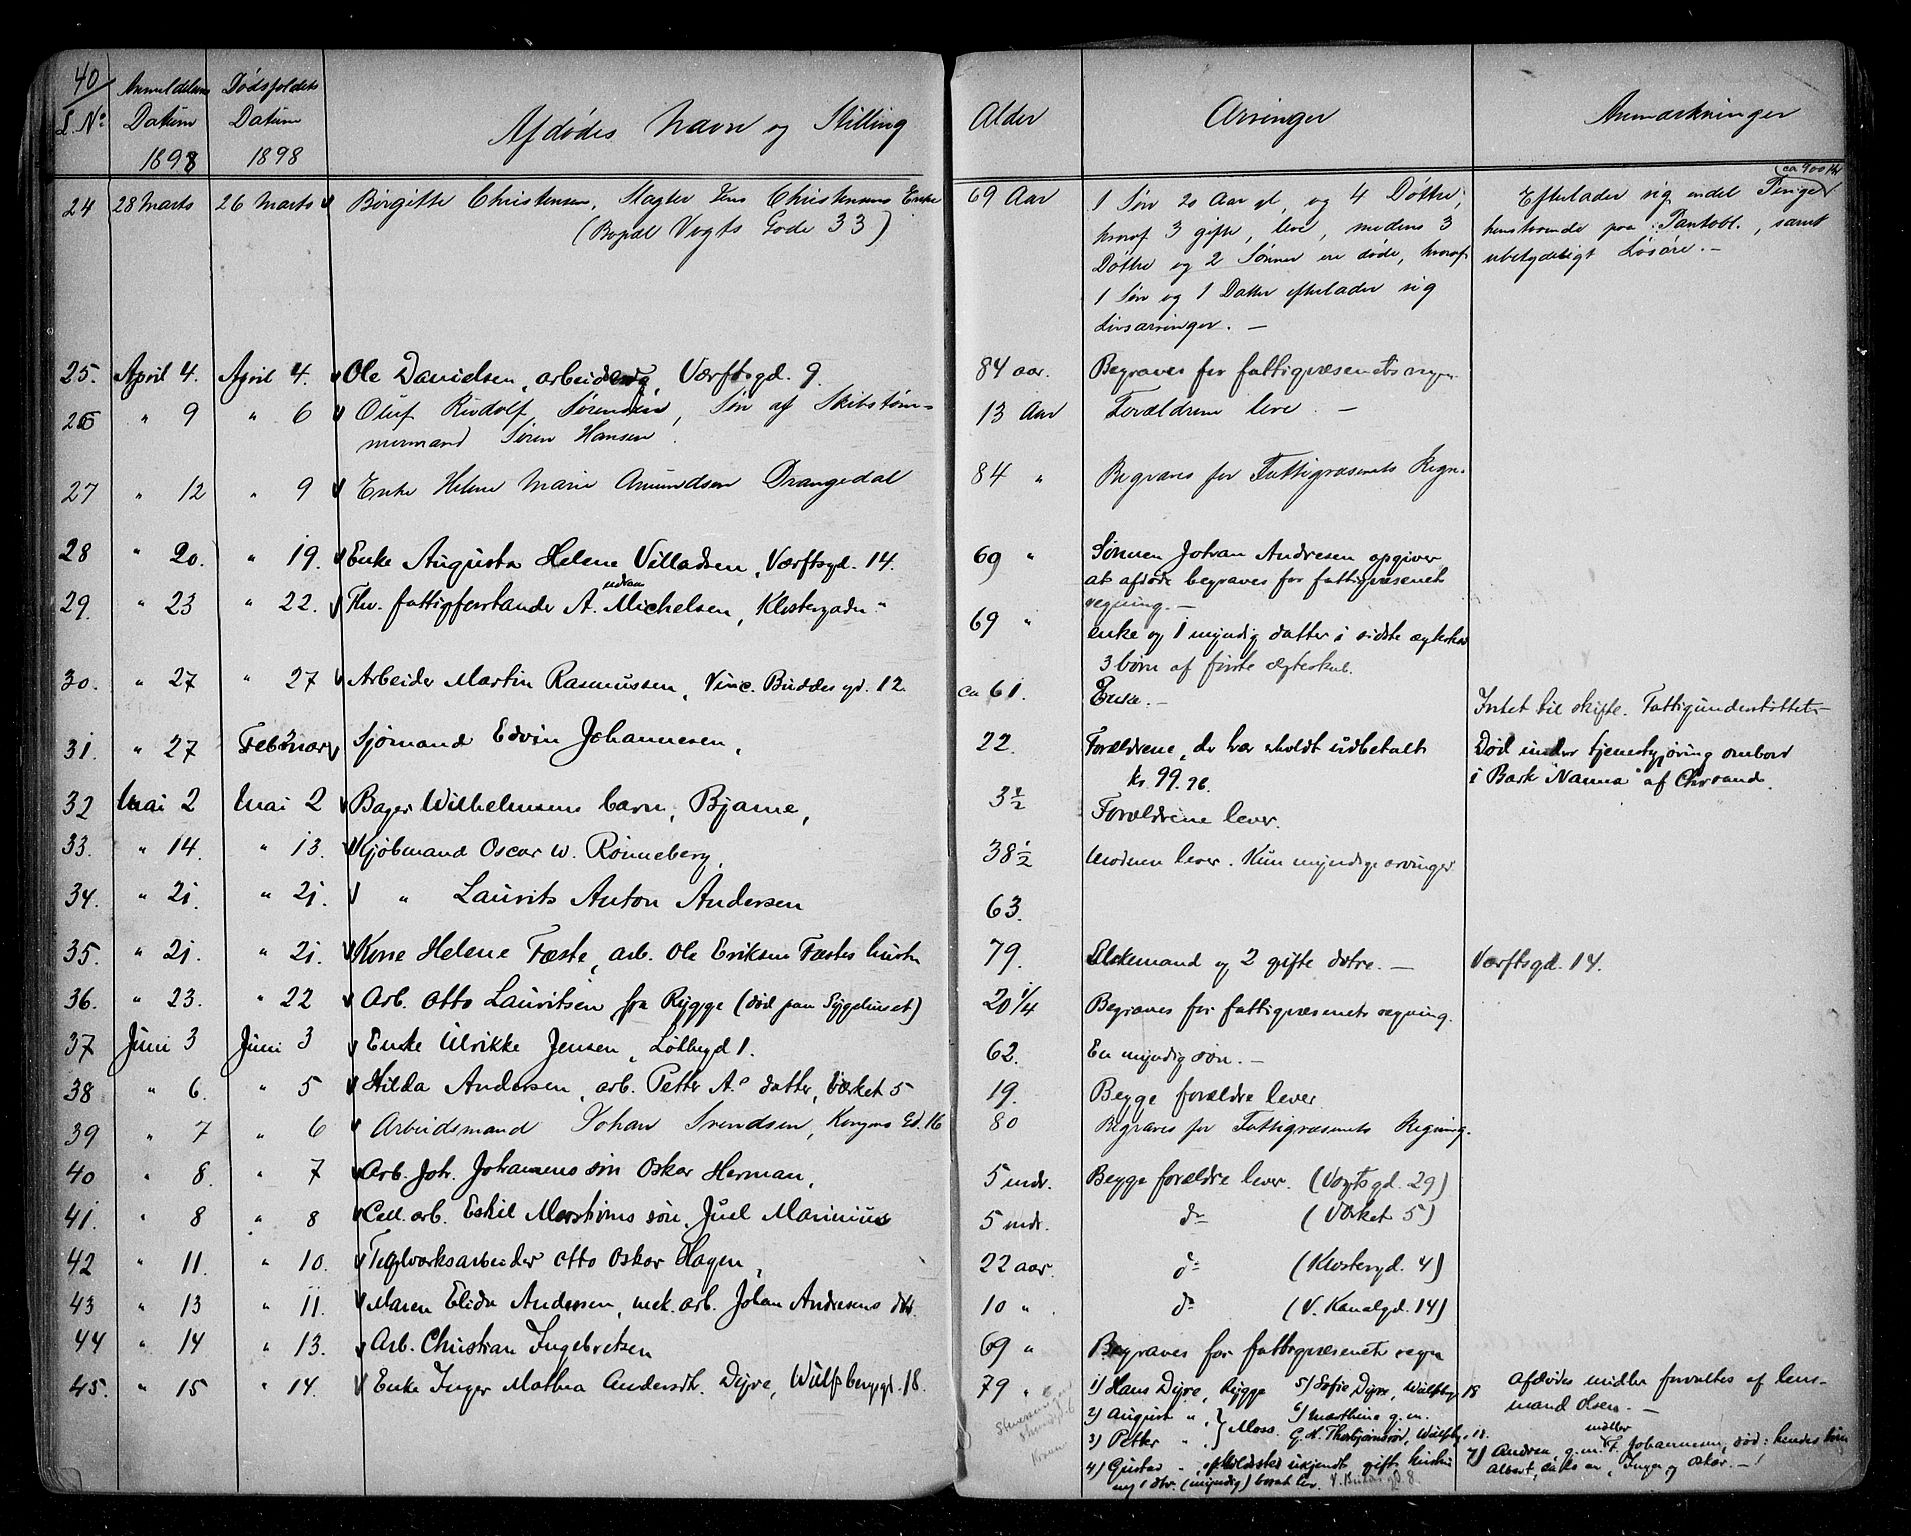 40
L. No Anmeldelsens Datum 1898 Dødsfaldets Datum 1898 Afdødes Navn og Stilling Alder Arvinger Anmærkninger
24 28 Marts 26 Marts Birgitte Christensen, Slagter Jens Christensens Enke 69 Aar 1 Søn 20 Aar gl, og 4 Døttre, Efterlader sig endel Penge (ca 900 Kr)
(Bopæl Vogts Gade 33) hvoraf 3 gifte, leve, medens 3 henstaaende paa Pantobl., samt
Døttre og 2 Sønner ere døde, hvoraf ubetydeligt Løsøre. -
1 Søn og 1 Datter efterlader sig
Livsarvinger. -
25. April 4. April 4. Ole Danielsen, arbeider, Værftsgd. 9. 84 aar. Begraves for fattigvæsenets regn.
26 " 9 " 6 Oluf Rudolf Sørensen, Søn af Skibstøm- 13 Aar Forældrene leve. -
mermand Søren Hansen.
27 " 12 " 9 Enke Helene Marie Amundsen Drangedal 84 " Begraves for Fattigvæsenets Regn.
28 " 20. " 19. Enke Augusta Helene Villadsen, Værftsgd. 14. 69 " Sønnen Johan Andresen opgiver
at afdøde begraves for fattigvæsenets
regning. -
29. " 23 " 22. Fhv. fattigforstander A. Michelsen, Klostergaden " 69 " enke og 1 myndig datter i sidste ægteskab
3 børn af første ægteskab.
30. " 27 " 27 Arbeider Martin Rasmussen, Vinc. Buddes gd. 12. ca 61. Enke. - Intet til skifte. Fattigunderstøttet
31. " 27 Februar Sjømand Edvin Johannesen, 22. Forældrene, der har erholdt udbetalt Død under tjenestgjøring ombord
kr. 99.96. i Bark "Nanna" af Chrsand.
32 Mai 2 Mai 2 Bager Wilhelmsens barn, Bjarne, 3 1/2 Forældrene lever.
33. " 14. " 13. Kjøbmand Oscar W. Rønneberg, 38 1/2 Moderen lever. Kun myndige arvinger
34. " 21. " 21. " Laurits Anton Andersen 63.
35. " 21. " 21. Kone Helene Fæste, arb. Ole Eriksen Fæstes hustru 79. Ektemand og 2 gifte døtre. - Værftsgd. 14.
36. " 23. " 22 Arb. Otto Lauritsen fra Rygge (død paa Sygehuset) 20 1/4 Begraves for fattigvæsenets regning.
37 Juni 3 Juni 3 Enke Ulrikke Jensen, Løkkegd 1. 62. En myndig søn. -
38 " 6. " 5 Hilda Andersen, arb. Petter A.s datter, Værket 5 19. Begge forældre lever
39 " 7 " 6 Arbeidsmand Johan Svendsen, Kongens Gd. 16 80 Begraves for Fattigvæsenets Regning.
40 " 8. " 7 Arb. Joh. Johansens søn Oskar Herman, 5 mdr. Begge forældre lever. (Vogtsgd. 29)
41. " 8 " 8 Cell. arb. Eskil Morstrøms søn, Juel Marinius 5 mdr. do (Værket 5)
42 " 11. " 10. Teglværksarbeider Otto Oskar Hagen, 22 aar. do (Klostergd. 4)
43 " 13 " 11. Maren Elida Andersen, mek. arb. Johan Andresens dtr. 10 " do (V. Kanalgd. 14)
44 " 14 " 13. Arb. Christian Ingebretsen 69 " Begraves for fattigvæsenets regn
45. " 15 " 14. Enke Inger Mathea Andersdtr. Dyre, Wulfsbergsgd. 18. 79 " 1) Hans Dyre, Rygge 5) Sofie Dyre, Wulfsbg. 18 Afdødes midler forvaltes af lens-
2) August " } Moss. 6) Marthine g. m. mand Olsen. -
3) Petter " G. H. Thorbjørnsrød, Wulfsbg. 18. 7) Andrea, g. m. F. Johannesen, død: hendes børn
4) Gustav " opholdssted ukjendt gifte hustru Albert, Inger og Oskar. -
og 1 dtr. (myndig)